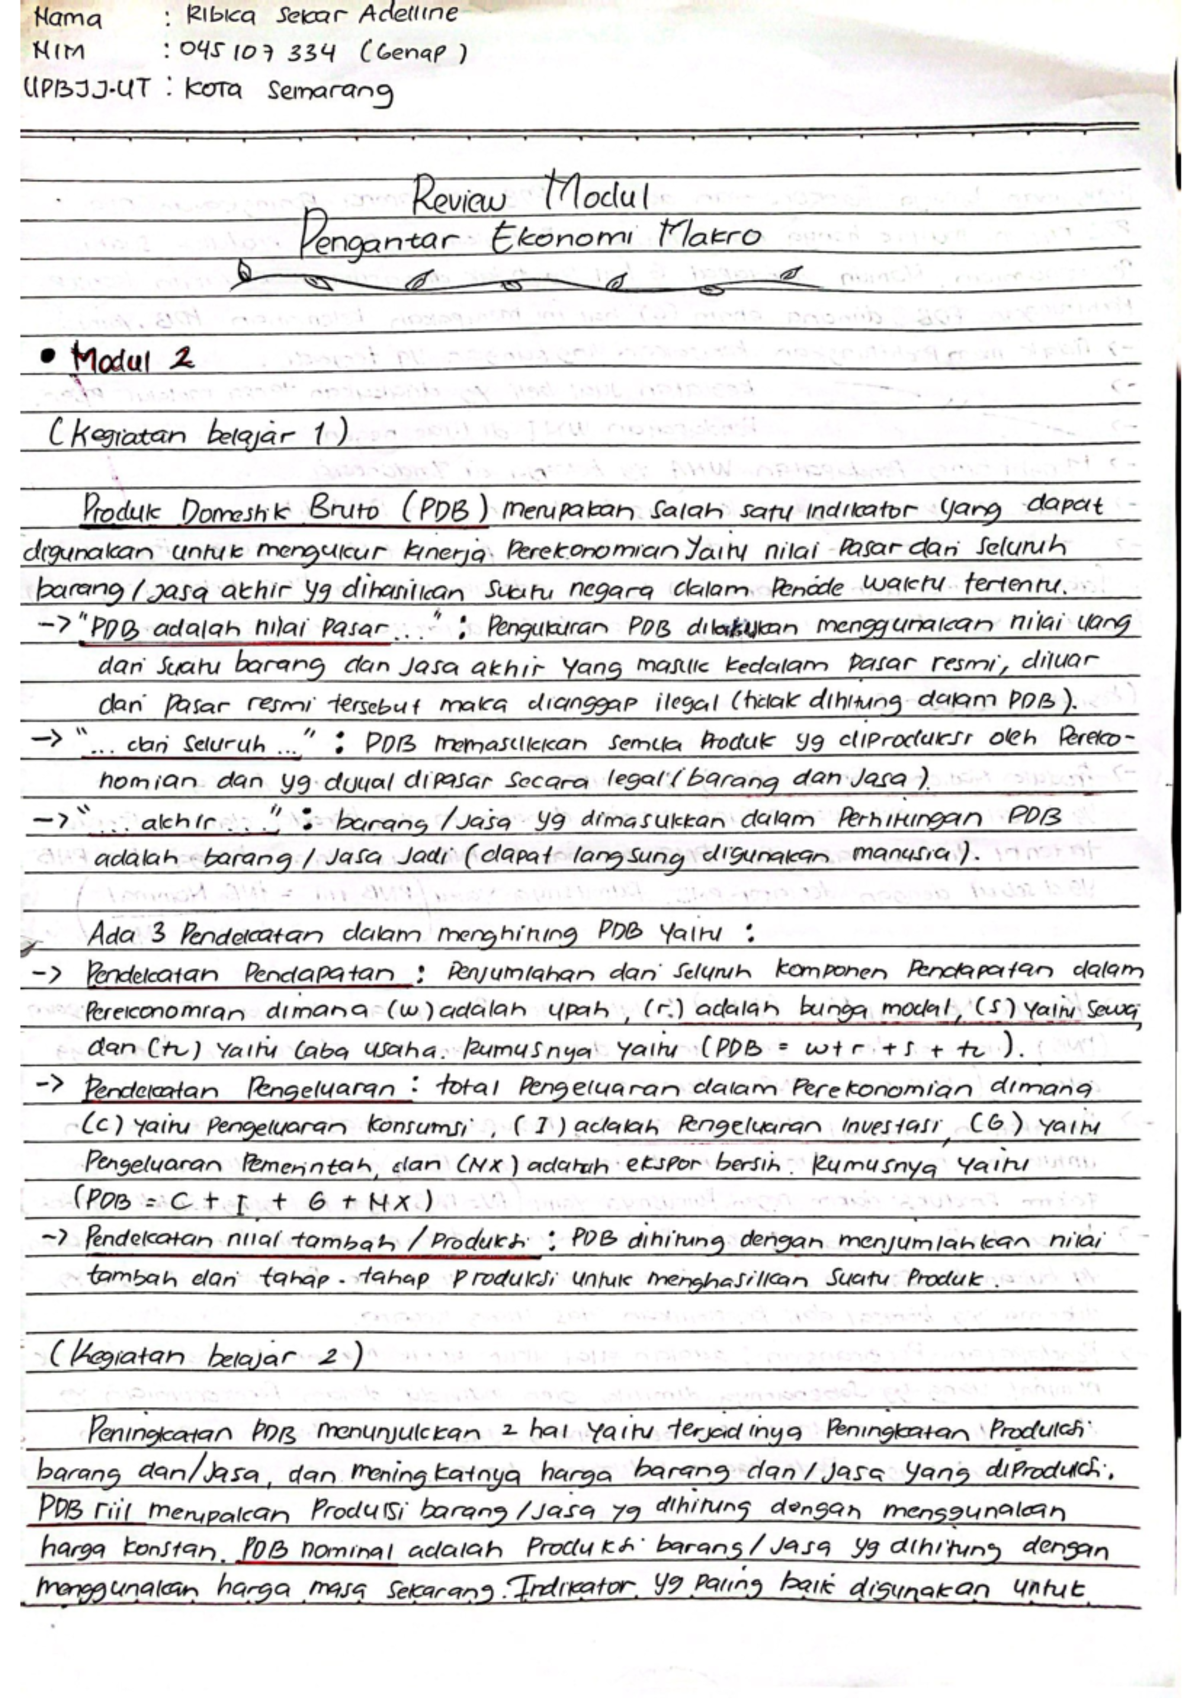 Nama : Ribka Sekar Adelline
NIM : 045 107 334 (Genap)
UPBJJ-UT : Kota Semarang
Review Modul
Pengantar Ekonomi Makro
• Modul 2
(Kegiatan belajar 1)
Produk Domestik Bruto (PDB) merupakan salah satu indikator yang dapat
digunakan untuk mengukur kinerja perekonomian yaitu nilai pasar dari seluruh
barang/jasa akhir yg dihasilkan suatu negara dalam periode waktu tertentu.
-> "PDB adalah nilai pasar..." : Pengukuran PDB dilakukan menggunakan nilai uang
dari suatu barang dan jasa akhir yang masuk kedalam pasar resmi, diluar
dari pasar resmi tersebut maka dianggap ilegal (tidak dihitung dalam PDB).
-> "... dari seluruh ..." : PDB memasukkan semua produk yg diproduksi oleh pereko-
nomian dan yg dijual dipasar secara legal (barang dan jasa).
-> "... akhir ..." : barang/jasa yg dimasukkan dalam perhitungan PDB
adalah barang/jasa jadi (dapat langsung digunakan manusia).
Ada 3 Pendekatan dalam menghitung PDB yaitu :
-> Pendekatan Pendapatan : Penjumlahan dari seluruh komponen pendapatan dalam
perekonomian dimana (w) adalah upah, (r) adalah bunga modal, (s) yaitu sewa,
dan (π) yaitu laba usaha. Rumusnya yaitu (PDB = w+r +s + π ).
-> Pendekatan Pengeluaran : total pengeluaran dalam perekonomian dimana
(C) yaitu pengeluaran konsumsi, (I) adalah pengeluaran investasi, (G) yaitu
pengeluaran pemerintah, dan (NX) adalah ekspor bersih. Rumusnya yaitu
(PDB = C + I + G + NX)
-> Pendekatan nilai tambah / Produksi : PDB dihitung dengan menjumlahkan nilai
tambah dari tahap-tahap produksi untuk menghasilkan suatu produk.
(Kegiatan belajar 2)
Peningkatan PDB menunjukkan 2 hal yaitu terjadinya peningkatan produksi
barang dan/jasa, dan meningkatnya harga barang dan/jasa yang diproduksi.
PDB riil merupakan produksi barang/jasa yg dihitung dengan menggunakan
harga konstan. PDB nominal adalah produksi barang/jasa yg dihitung dengan
menggunakan harga masa sekarang. Indikator yg paling baik digunakan untuk